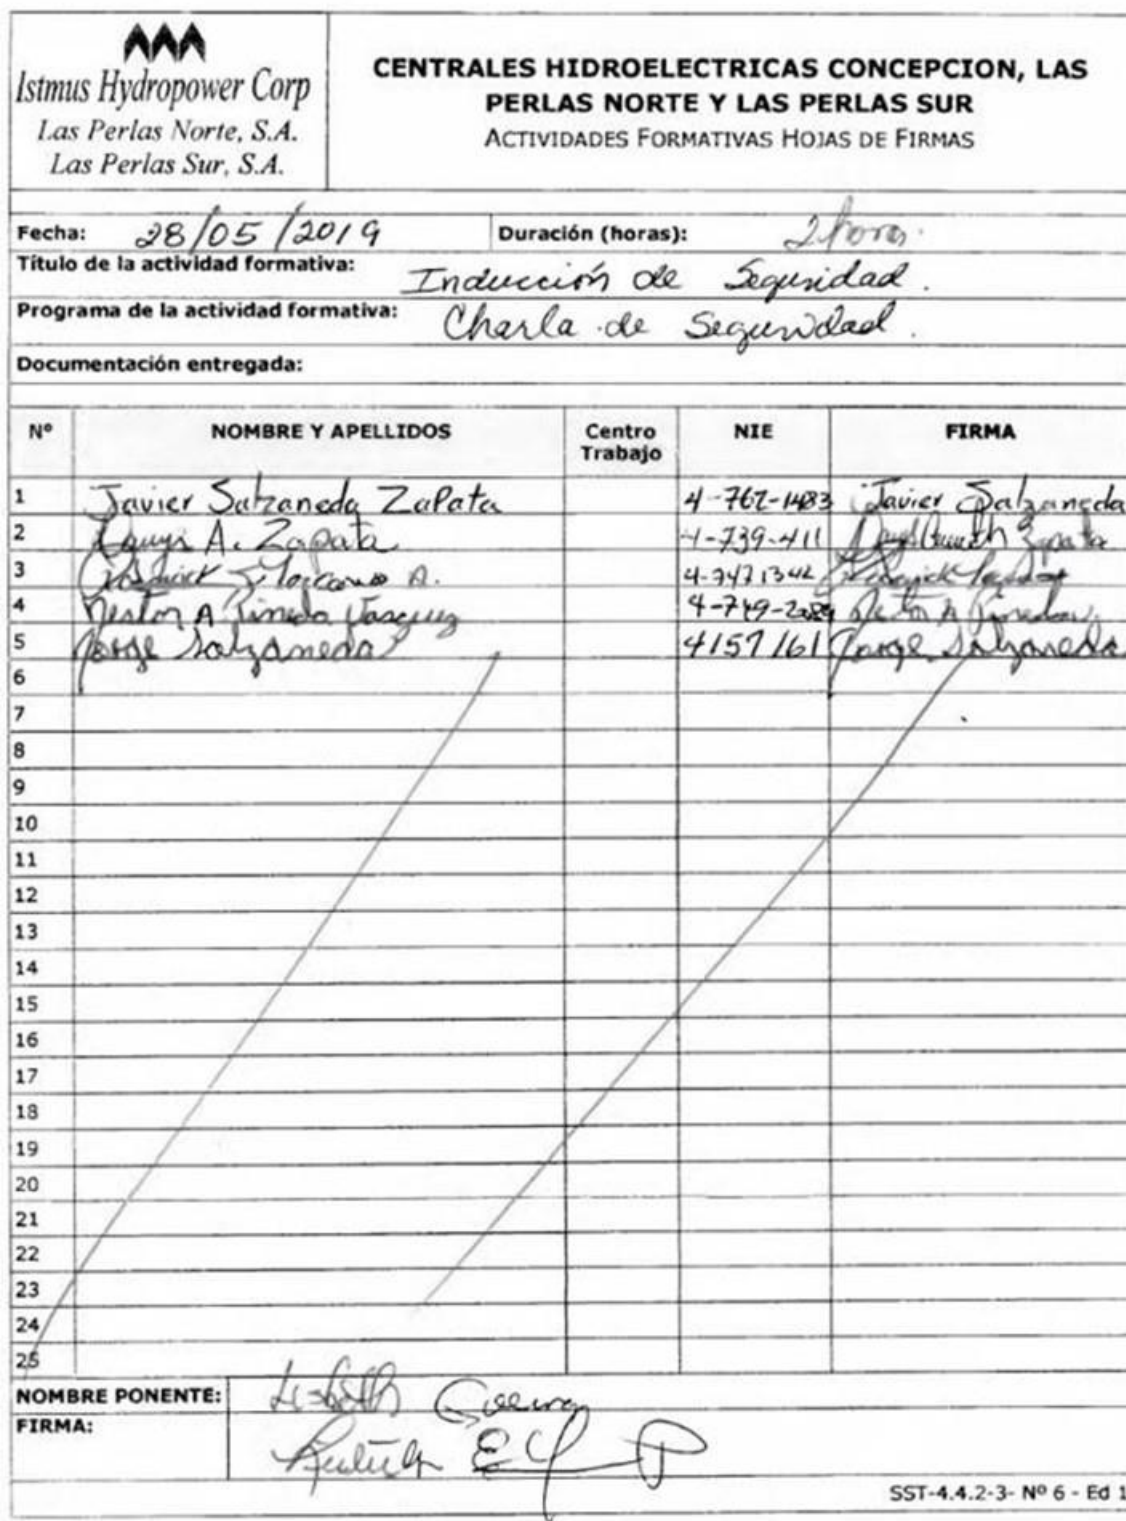 Istmus Hydropower Corp
Las Perlas Norte, S.A.
Las Perlas Sur, S.A.
CENTRALES HIDROELECTRICAS CONCEPCION, LAS
PERLAS NORTE Y LAS PERLAS SUR
ACTIVIDADES FORMATIVAS HOJAS DE FIRMAS
Fecha: 28/05/2019 Duración (horas): 2 horas.
Título de la actividad formativa: Inducción de Seguridad.
Programa de la actividad formativa: Charla de Seguridad.
Documentación entregada:
Nº NOMBRE Y APELLIDOS Centro Trabajo NIE FIRMA
1 Javier Salzaneda Zapata 4-762-1483 Javier Salzaneda
2 A. Zapata 4-739-411 Zapata
3 A. 4-747 1342
4 Nestor A Pineda Vasquez 4-749-2089 Nestor A Pineda
5 Jorge Salzaneda 4157 161 Jorge Salzaneda
6
7
8
9
10
11
12
13
14
15
16
17
18
19
20
21
22
23
24
25
NOMBRE PONENTE: Lisbeth
FIRMA:
SST-4.4.2-3- Nº 6 - Ed 1